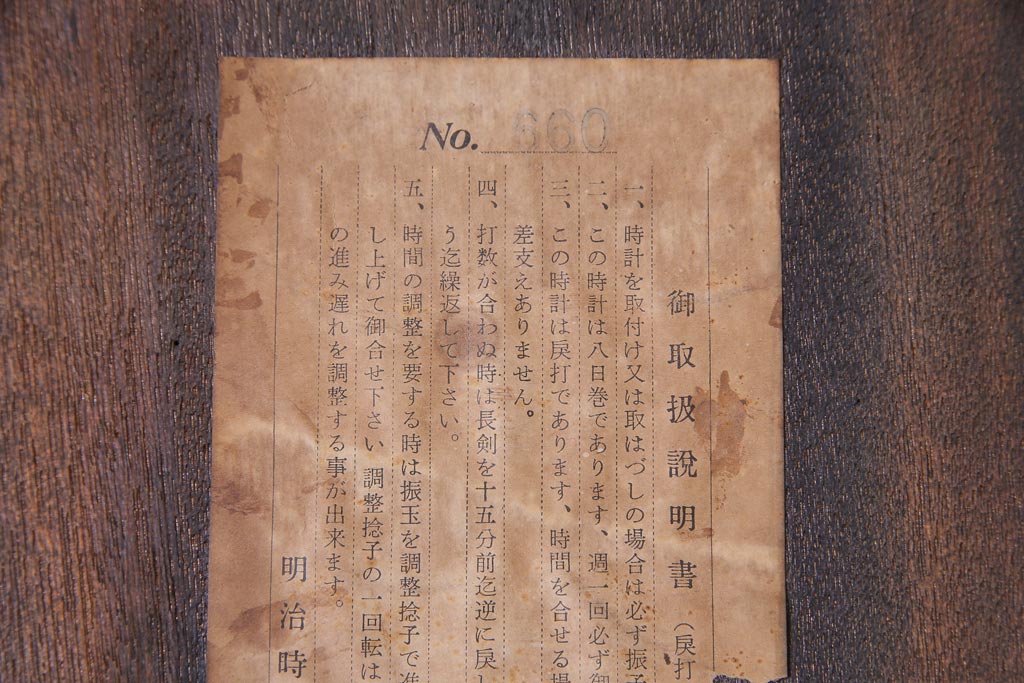 No. 660
御取扱説明書（戻打
一、時計を取付け又は取はづしの場合は必ず振子
二、この時計は八日巻であります、週一回必ず御
三、この時計は戻打であります、時間を合せる場
差支えありません。
四、打数が合わぬ時は長剣を十五分前迄逆に戻し
う迄繰返して下さい。
五、時間の調整を要する時は振玉を調整捻子で進
し上げて御合せ下さい 調整捻子の一回転は
の進み遅れを調整する事が出来ます。
明治時